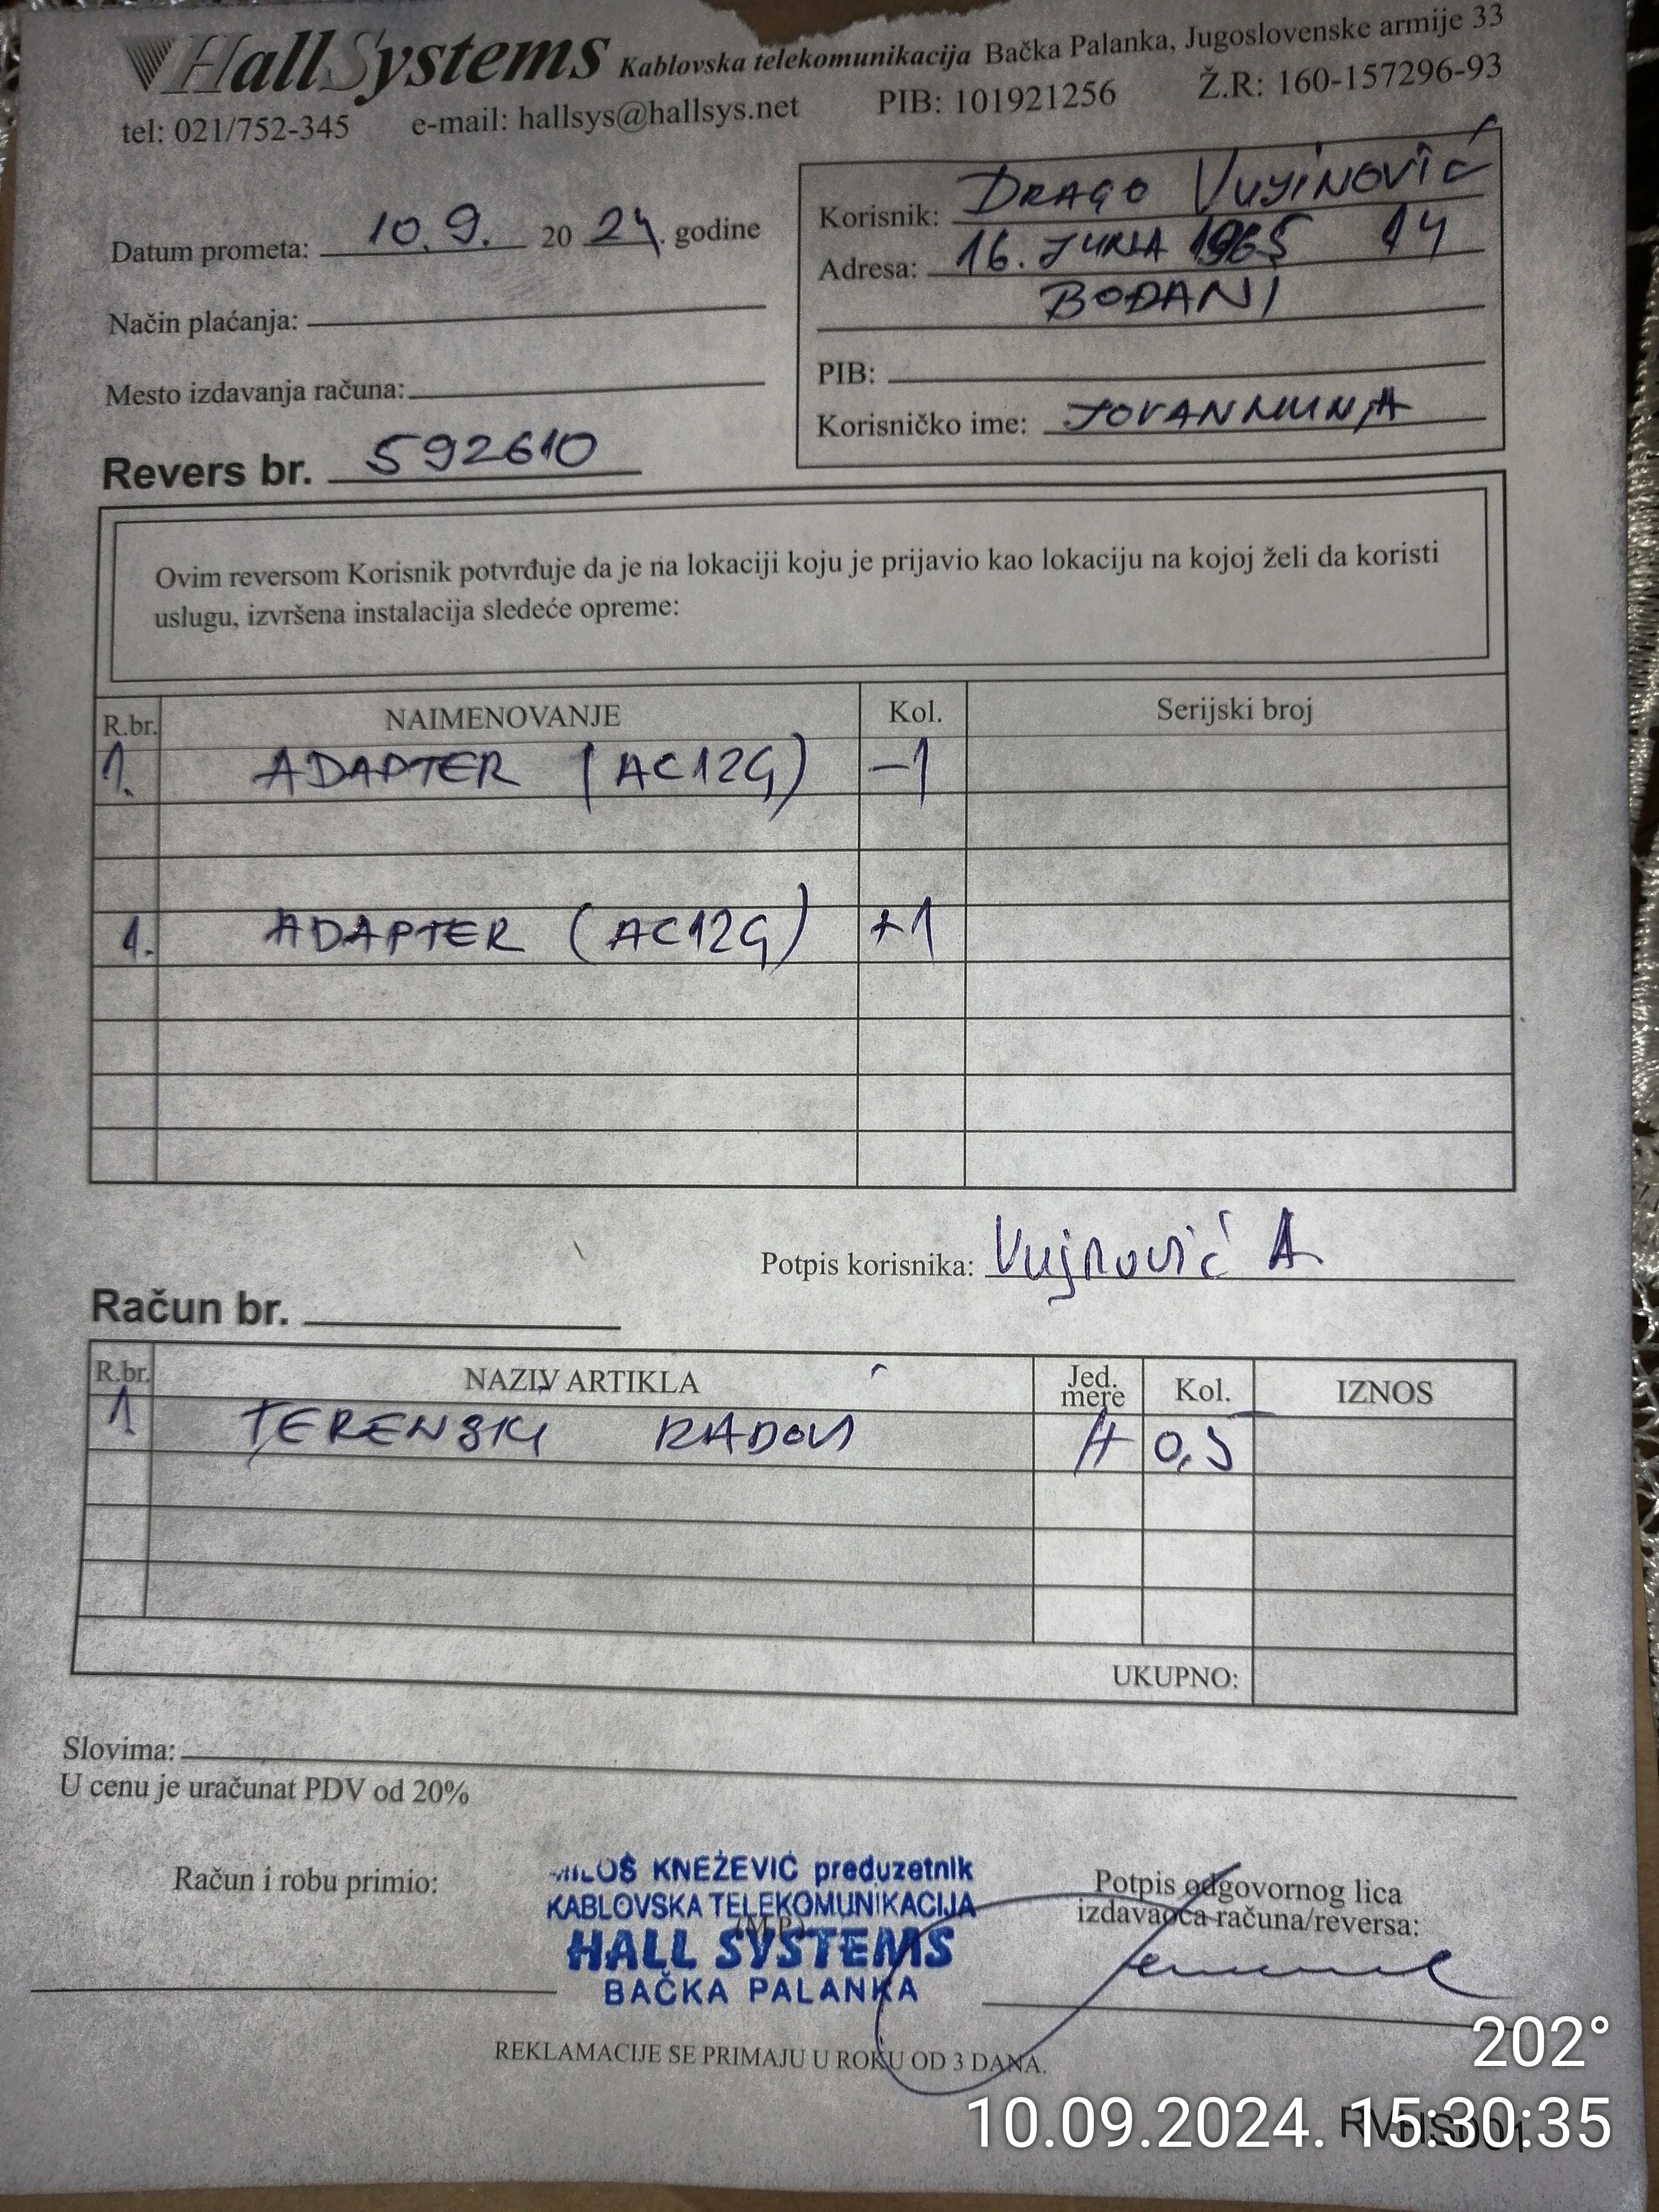 HallSystems Kablovska telekomunikacija Bačka Palanka, Jugoslovenske armije 33
tel: 021/752-345 e-mail: hallsys@hallsys.net PIB: 101921256 Ž.R: 160-157296-93
Datum prometa: 10.9. 2024. godine
Način plaćanja:
Mesto izdavanja računa:
Revers br. 592610
Korisnik: DRAGO VUJINOVIĆ
Adresa: 16. JUNA 1965 14
BOĐANI
PIB:
Korisničko ime: JOVANMUNJA
Ovim reversom Korisnik potvrđuje da je na lokaciji koju je prijavio kao lokaciju na kojoj želi da koristi
uslugu, izvršena instalacija sledeće opreme:
R.br. NAIMENOVANJE Kol. Serijski broj
1. ADAPTER (AC12G) -1
1. ADAPTER (AC12G) +1
Potpis korisnika: Vujnović A
Račun br.
R.br. NAZIV ARTIKLA Jed. mere Kol. IZNOS
1 TERENSKI RADOVI H 0,5
UKUPNO:
Slovima:
U cenu je uračunat PDV od 20%
Račun i robu primio:
MILOŠ KNEŽEVIĆ preduzetnik
KABLOVSKA TELEKOMUNIKACIJA
(M.P.)
HALL SYSTEMS
BAČKA PALANKA
Potpis odgovornog lica
izdavaoca računa/reversa:
REKLAMACIJE SE PRIMAJU U ROKU OD 3 DANA.
202°
10.09.2024. 15:30:35
RVHS001